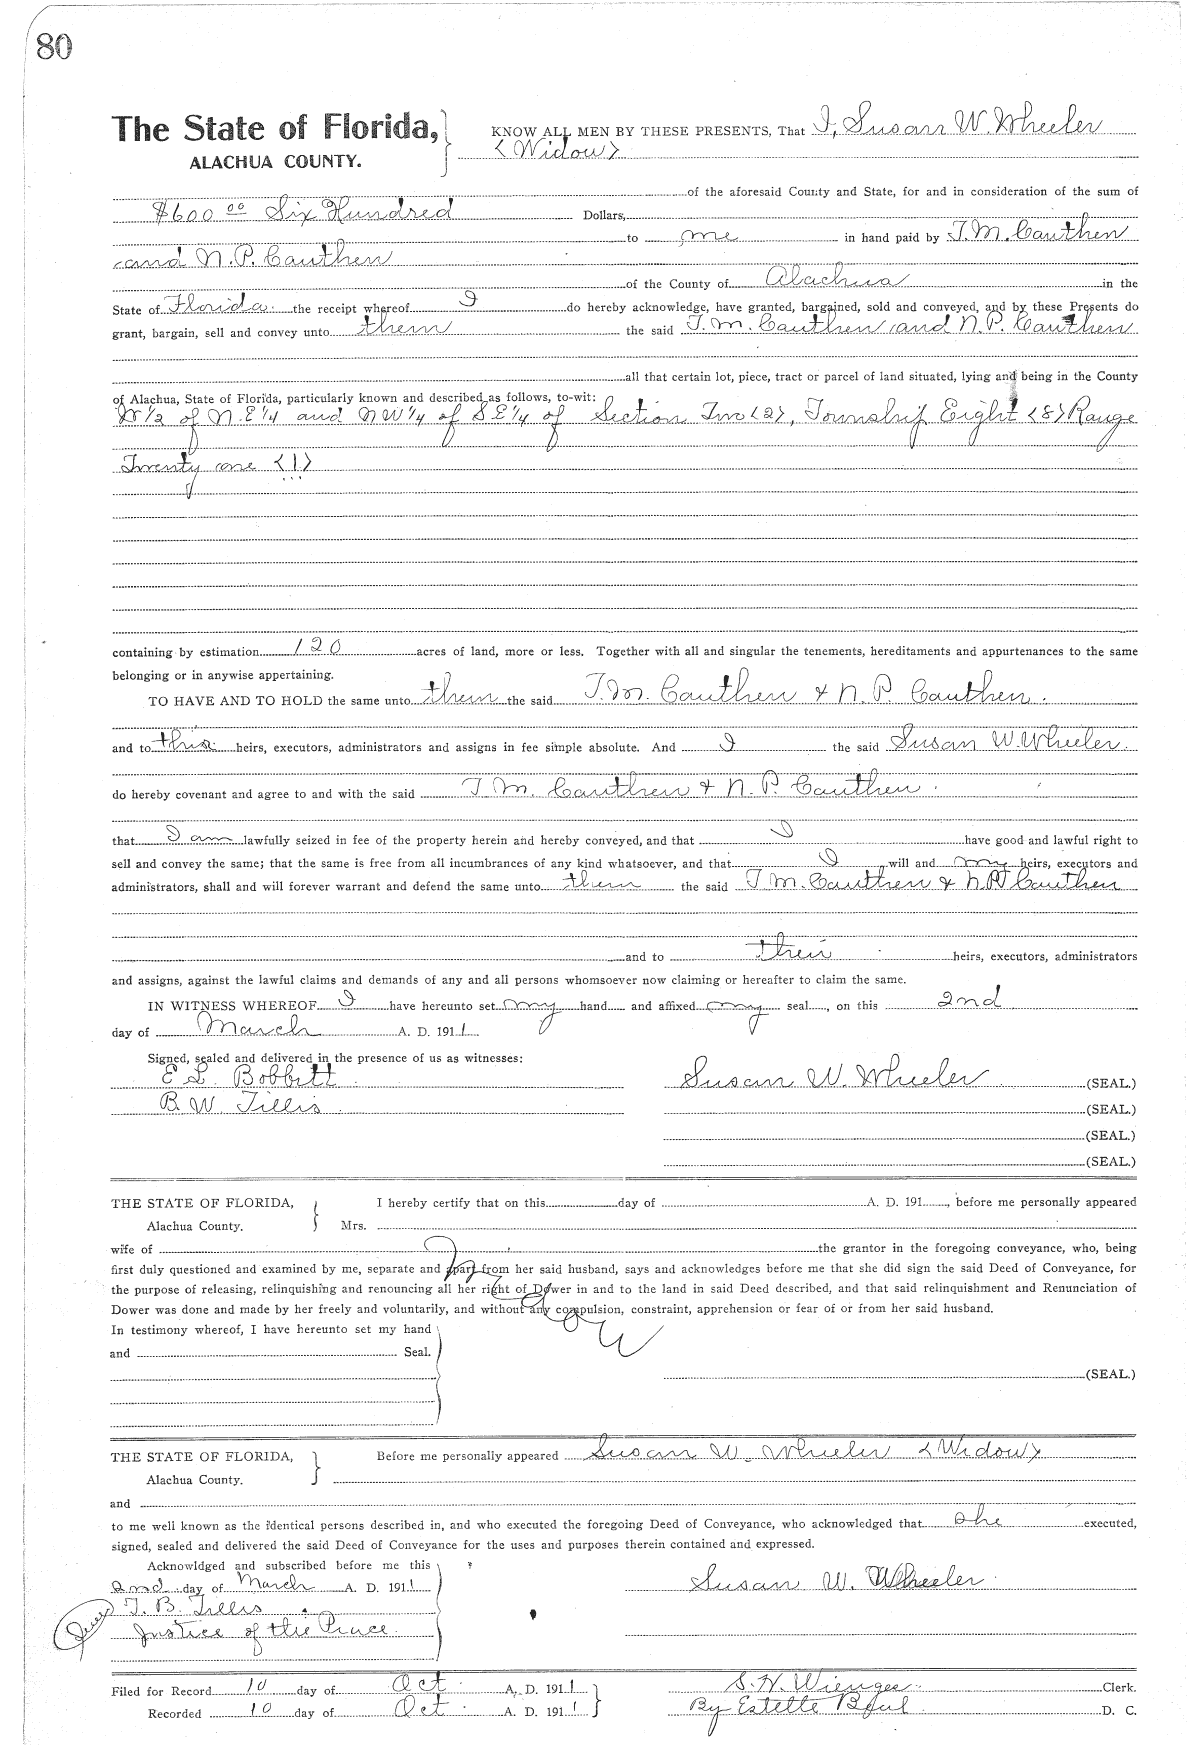 80
The State of Florida,
ALACHUA COUNTY.
KNOW ALL MEN BY THESE PRESENTS, That I, Susan W. Wheeler
(Widow)
of the aforesaid County and State, for and in consideration of the sum of
$600 00 Six Hundred Dollars,
to me in hand paid by T. M. Cauthen
and N. P. Cauthen
of the County of Alachua in the
State of Florida the receipt whereof I do hereby acknowledge, have granted, bargained, sold and conveyed, and by these Presents do
grant, bargain, sell and convey unto them the said T. M. Cauthen and N. P. Cauthen
all that certain lot, piece, tract or parcel of land situated, lying and being in the County
of Alachua, State of Florida, particularly known and described as follows, to-wit:
W 1/2 of N. E 1/4 and NW 1/4 of S E 1/4 of Section Two (2), Township Eight (8) Range
Twenty one (1)
containing by estimation 120 acres of land, more or less. Together with all and singular the tenements, hereditaments and appurtenances to the same
belonging or in anywise appertaining.
TO HAVE AND TO HOLD the same unto them the said T. M. Cauthen & N. P. Cauthen.
and to heirs, executors, administrators and assigns in fee simple absolute. And I the said Susan W. Wheeler.
do hereby covenant and agree to and with the said T M. Cauthen & N. P. Cauthen.
that I am lawfully seized in fee of the property herein and hereby conveyed, and that I have good and lawful right to
sell and convey the same; that the same is free from all incumbrances of any kind whatsoever, and that I will and my heirs, executors and
administrators, shall and will forever warrant and defend the same unto them the said T. M. Cauthen & N. P. Cauthen
and to their heirs, executors, administrators
and assigns, against the lawful claims and demands of any and all persons whomsoever now claiming or hereafter to claim the same.
IN WITNESS WHEREOF I have hereunto set my hand and affixed my seal, on this 2nd
day of March A. D. 1911.
Signed, sealed and delivered in the presence of us as witnesses:
E L Bobbitt
Susan W. Wheeler (SEAL.)
B. W. Tillis
(SEAL.)
(SEAL.)
(SEAL.)
THE STATE OF FLORIDA,
Alachua County.
I hereby certify that on this day of A. D. 191 , before me personally appeared
Mrs.
wife of the grantor in the foregoing conveyance, who, being
first duly questioned and examined by me, separate and apart from her said husband, says and acknowledges before me that she did sign the said Deed of Conveyance, for
the purpose of releasing, relinquishing and renouncing all her right of Dower in and to the land in said Deed described, and that said relinquishment and Renunciation of
Dower was done and made by her freely and voluntarily, and without any compulsion, constraint, apprehension or fear of or from her said husband.
In testimony whereof, I have hereunto set my hand
and Seal.
(SEAL.)
THE STATE OF FLORIDA,
Alachua County.
Before me personally appeared Susan W. Wheeler (Widow)
and
to me well known as the identical persons described in, and who executed the foregoing Deed of Conveyance, who acknowledged that She executed,
signed, sealed and delivered the said Deed of Conveyance for the uses and purposes therein contained and expressed.
Acknowldged and subscribed before me this
2nd day of March A. D. 1911
Susan W. Wheeler.
T. B. Tillis
Justice of the Peace.
Filed for Record 10 day of Oct. A. D. 1911
S. H. Wienges Clerk.
Recorded 10 day of Oct. A. D. 1911
By Estelle D. C.